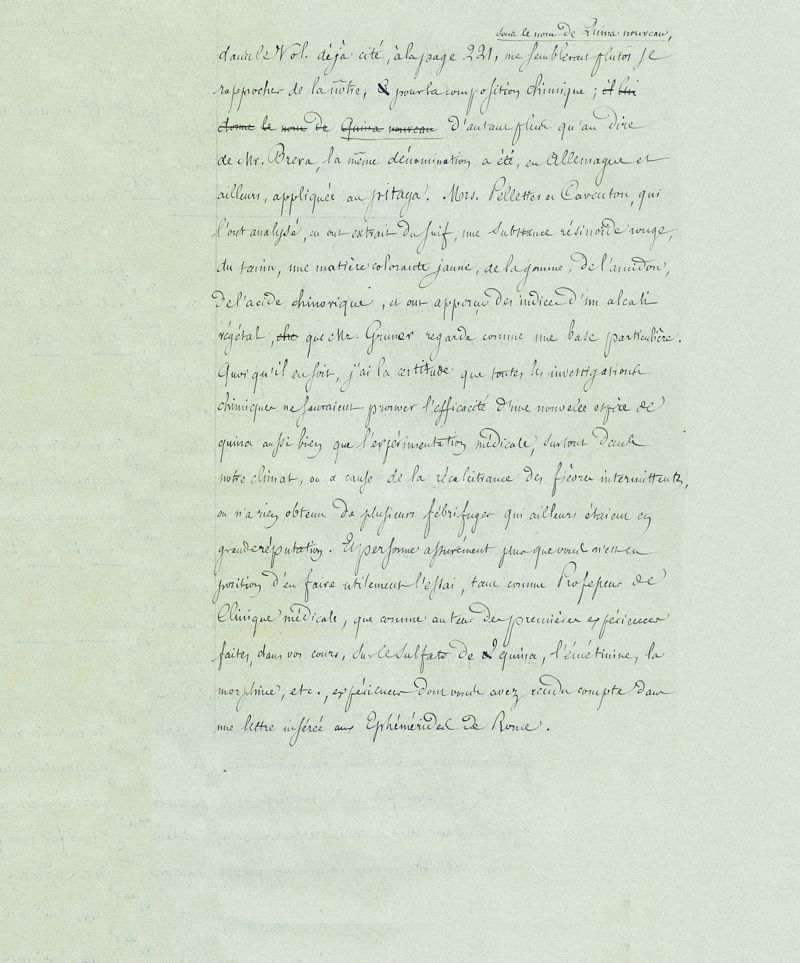 sous le nom de Quina nouveau,
dans le Vol. déjà cité, à la page 221, me semblerait plutôt se
rapprocher de la nôtre, pour la composition chimique ; il lui
donne le nom de Quina nouveau D'autant plus qu'au dire
de Mr. Brera, la même dénomination a été, en Allemagne et
ailleurs, appliquée au pitaya. Mrs. Pelletier et Caventon, qui
l'ont analysé, en ont extrait du suif, une substance résinoïde rouge,
du tanin, une matière colorante jaune, de la gomme, de l'amidon,
de l'acide chinorique, et ont apperçu des indices d'un alcali
végétal, que Mr. Gruner regarde comme une base particulière.
Quoi qu'il en soit, j'ai la certitude que toutes les investigations
chimiques ne sauraient prouver l'efficacité d'une nouvelle espèce de
quina aussi bien que l'expérimentation médicale, surtout dans
notre climat, où a cause de la récalcitrance des fièvres intermittentes,
on n'a rien obtenu de plusieurs fébrifuges qui ailleurs étaient en
grande réputation. Et personne assurément plus que vous n'est en
position d'en faire utilement l'essai, tant comme Professeur de
Clinique médicale, que comme auteur des premières expériences
faites, dans vos cours, sur le sulfate de quina, l'émétinine, la
morphine, etc., expériences dont vous avez rendu compte dans
une lettre insérée aux Ephémérides de Rome.